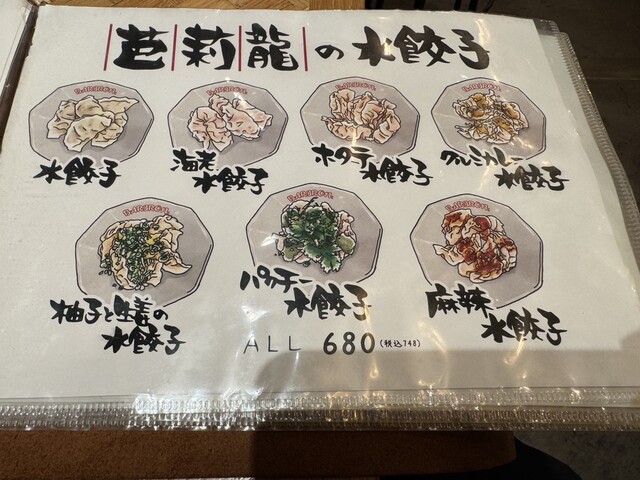 芭莉龍の水餃子
BARIRON
BARIRON
BARIRON
BARIRON
水餃子
海老
水餃子
ホタテ
水餃子
グリーンカレー
水餃子
BARIRON
BARIRON
BARIRON
柚子と生姜の
水餃子
パクチー
水餃子
麻辣
水餃子
ALL 680(税込748)